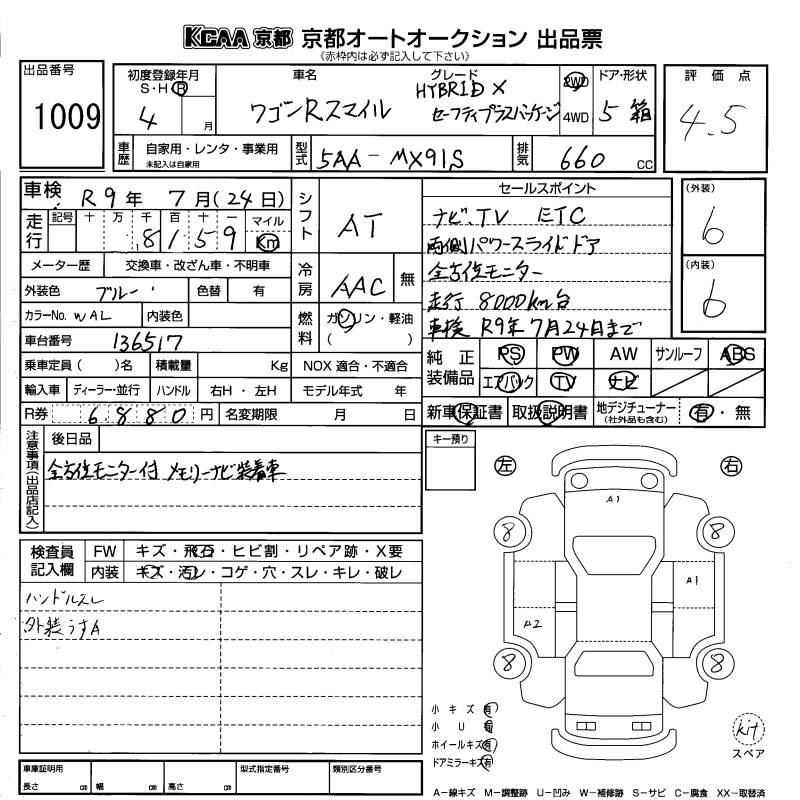 KCAA 京都 京都オートオークション 出品票
《赤枠内は必ず記入して下さい》
出品番号
1009
初度登録年月
S・H・R
4 月
車名
ワゴンRスマイル
グレード
HYBRID X
セーフティプラスパッケージ
2WD
4WD
ドア・形状
5 箱
評価点
4.5
車歴
自家用・レンタ・事業用
未記入は自家用
型式
5AA-MX91S
排気
660 CC
車検 R9年 7月(24日)
走行
記号 十 万 千 百 十 一 マイル
8159 Km
シフト
AT
メーター歴 交換車・改ざん車・不明車
外装色 ブルー
色替 有
冷房
AAC 無
カラーNo. WAL
内装色
燃料
ガソリン・軽油
( )
車台番号 136517
乗車定員( )名 積載量 Kg NOX 適合・不適合
輸入車 ディーラー・並行 ハンドル 右H・左H モデル年式 年
R券 6,880円 名変期限 月 日
セールスポイント
ナビ、TV ETC
両側パワースライドドア
全方位モニター
走行 8000km台
車検 R9年7月24日まで
(外装)
6
(内装)
6
純正装備品
PS PW AW サンルーフ ABS
エアバック TV ナビ
新車保証書 取扱説明書 地デジチューナー(社外品も含む) 有・無
注意事項(出品店記入)
後日品
全方位モニター付 メモリーナビ装着車
キー預り
左 右
検査員記入欄
FW キズ・飛石・ヒビ割・リペア跡・X要
内装 キズ・汚レ・コゲ・穴・スレ・キレ・破レ
ハンドルスレ
外装うすA
A1
8 8
A1
A2
8 8
小キズ有
小U有
ホイールキズ有
ドアミラーキズ有
kit
スペア
車庫証明用
長さ cm 幅 cm 高さ cm
型式指定番号
類別区分番号
A−線キズ M−調整跡 U−凹み W−補修跡 S−サビ C−腐食 XX−取替済